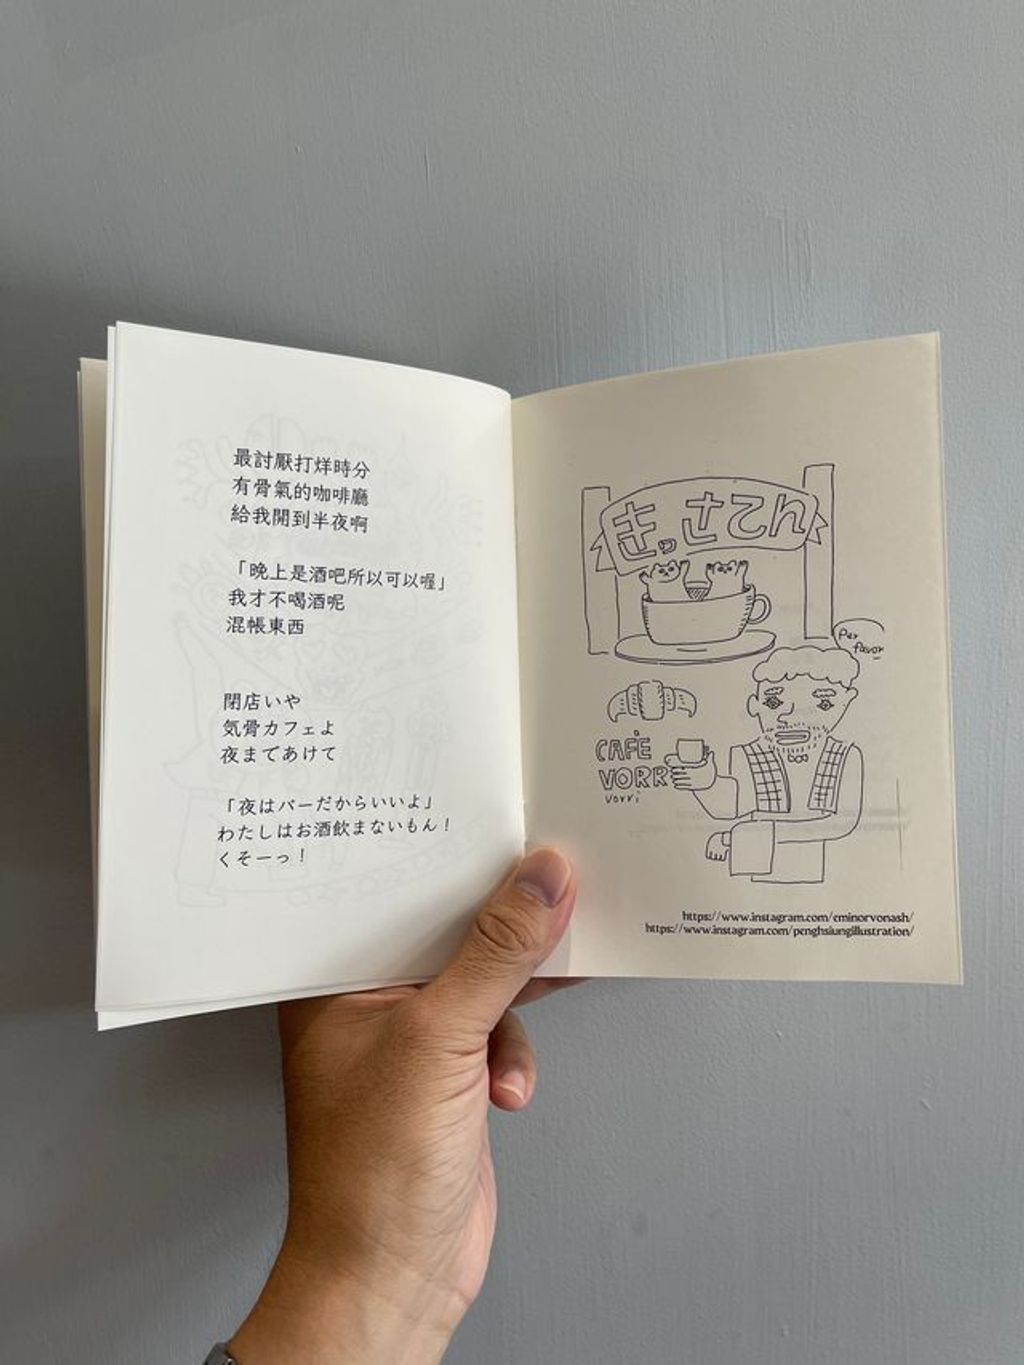 最討厭打烊時分
有骨氣的咖啡廳
給我開到半夜啊
「晚上是酒吧所以可以喔」
我才不喝酒呢
混帳東西
閉店いや
気骨カフェよ
夜まであけて
「夜はバーだからいいよ」
わたしはお酒飲まないもん！
くそーっ！
きっさてん
Per
favor
CAFÈ
VORR
vorri
https://www.instagram.com/eminorvonash/
https://www.instagram.com/penghsiungillustration/